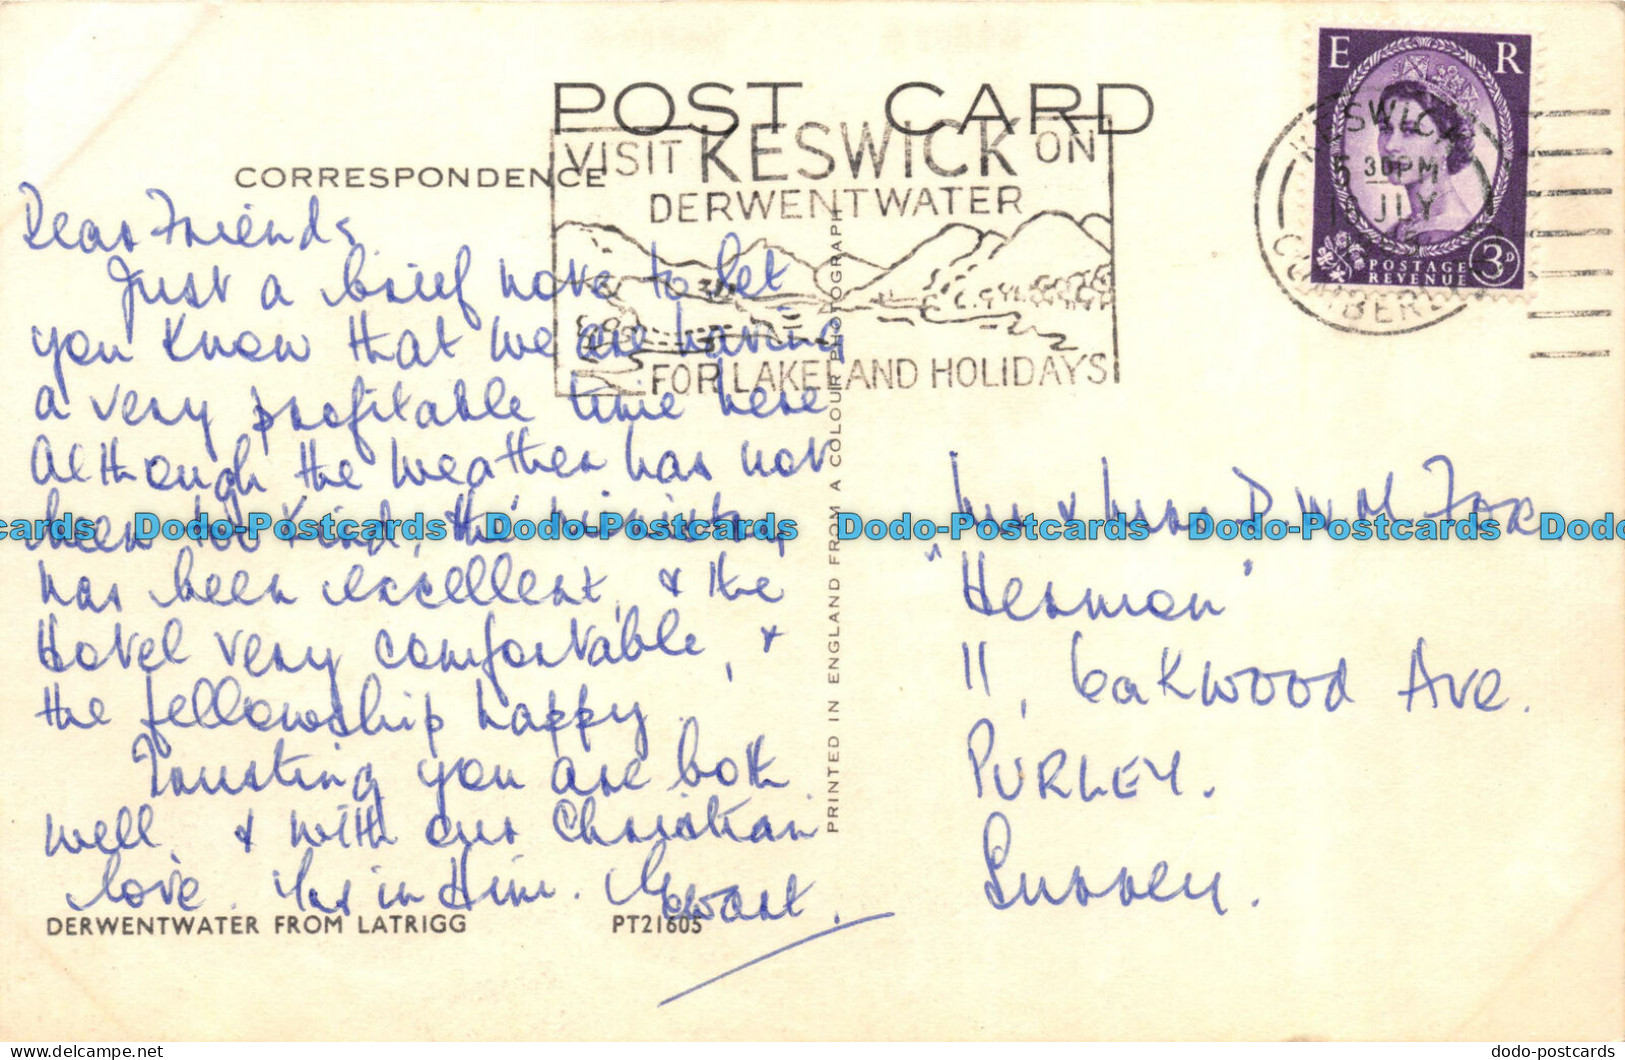 POST CARD
CORRESPONDENCE
VISIT KESWICK ON
DERWENTWATER
FOR LAKELAND HOLIDAYS
E R
POSTAGE
REVENUE
3D
KESWICK
5 30PM
JLY
CUMBERLAND
Dear Friends
Just a brief note to let
you know that we are having
a very profitable time here
Although the weather has not
been too kind, the ministry
has been excellent, & the
Hotel very comfortable, &
the fellowship happy.
Trusting you are both
well & with our Christian
love. Yrs in Him.
DERWENTWATER FROM LATRIGG
PT21605
PRINTED IN ENGLAND FROM A COLOUR PHOTOGRAPH
Mr & Mrs D.W.M. Fox
"Hermon"
11, Oakwood Ave.
PURLEY.
Surrey.
Dodo-Postcards Dodo-Postcards Dodo-Postcards Dodo-Postcards Dodo-Postcards
delcampe.net
dodo-postcards